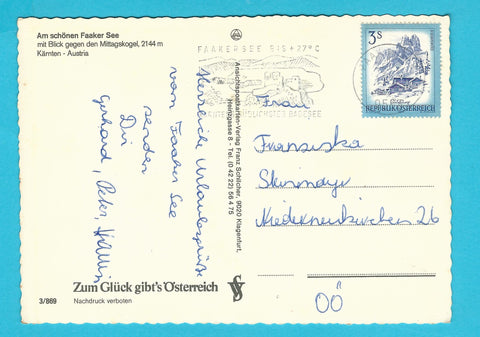 Am schönen Faaker See
mit Blick gegen den Mittagskogel, 2144 m
Kärnten - Austria
FAAKERSEE BIS +27°C
BADESEE
3 S
REPUBLIK ÖSTERREICH
Herrliche Urlaubsgrüße
vom Faaker See
senden
Dir
Gerhard, Peter,
Ansichtspostkarten-Verlag Franz Schilcher, 9020 Klagenfurt,
Herzogasse 8 - Tel. (0 42 22) 56 4 75
Frau
Franziska
Niederneukirchen 26
OÖ
Zum Glück gibt's Österreich
3/869
Nachdruck verboten